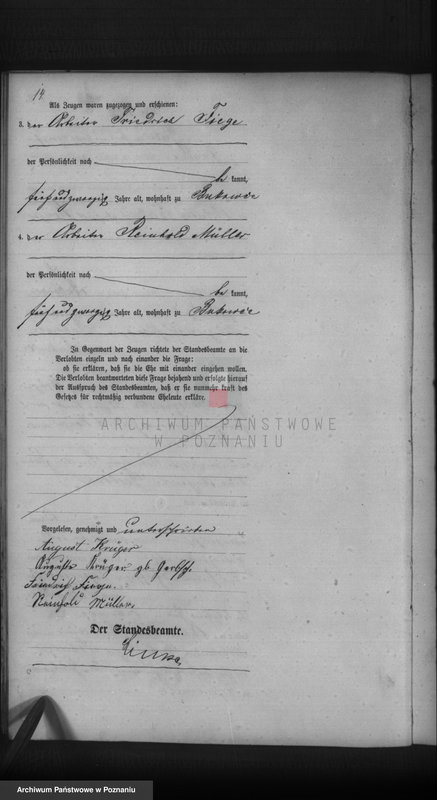 14
Als Zeugen waren zugezogen und erschienen:
3. der Arbeiter Friedrich Fiege
der Persönlichkeit nach
be kannt,
fünfundzwanzig Jahre alt, wohnhaft zu Bukowce
4. der Arbeiter Reinhold Müller
der Persönlichkeit nach
be kannt,
fünfundzwanzig Jahre alt, wohnhaft zu Bukowce
In Gegenwart der Zeugen richtete der Standesbeamte an die
Verlobten einzeln und nach einander die Frage:
ob sie erklären, daß sie die Ehe mit einander eingehen wollen.
Die Verlobten beantworteten diese Frage bejahend und erfolgte hierauf
der Ausspruch des Standesbeamten, daß er sie nunmehr kraft des
Gesetzes für rechtmäßig verbundene Eheleute erkläre.
ARCHIWUM PAŃSTWOWE
W POZNANIU
Vorgelesen, genehmigt und unterschrieben
August Krüger
Auguste Krüger gb
Friedrich Fiege.
Reinhold Müller.
Der Standesbeamte.
Archiwum Państwowe w Poznaniu